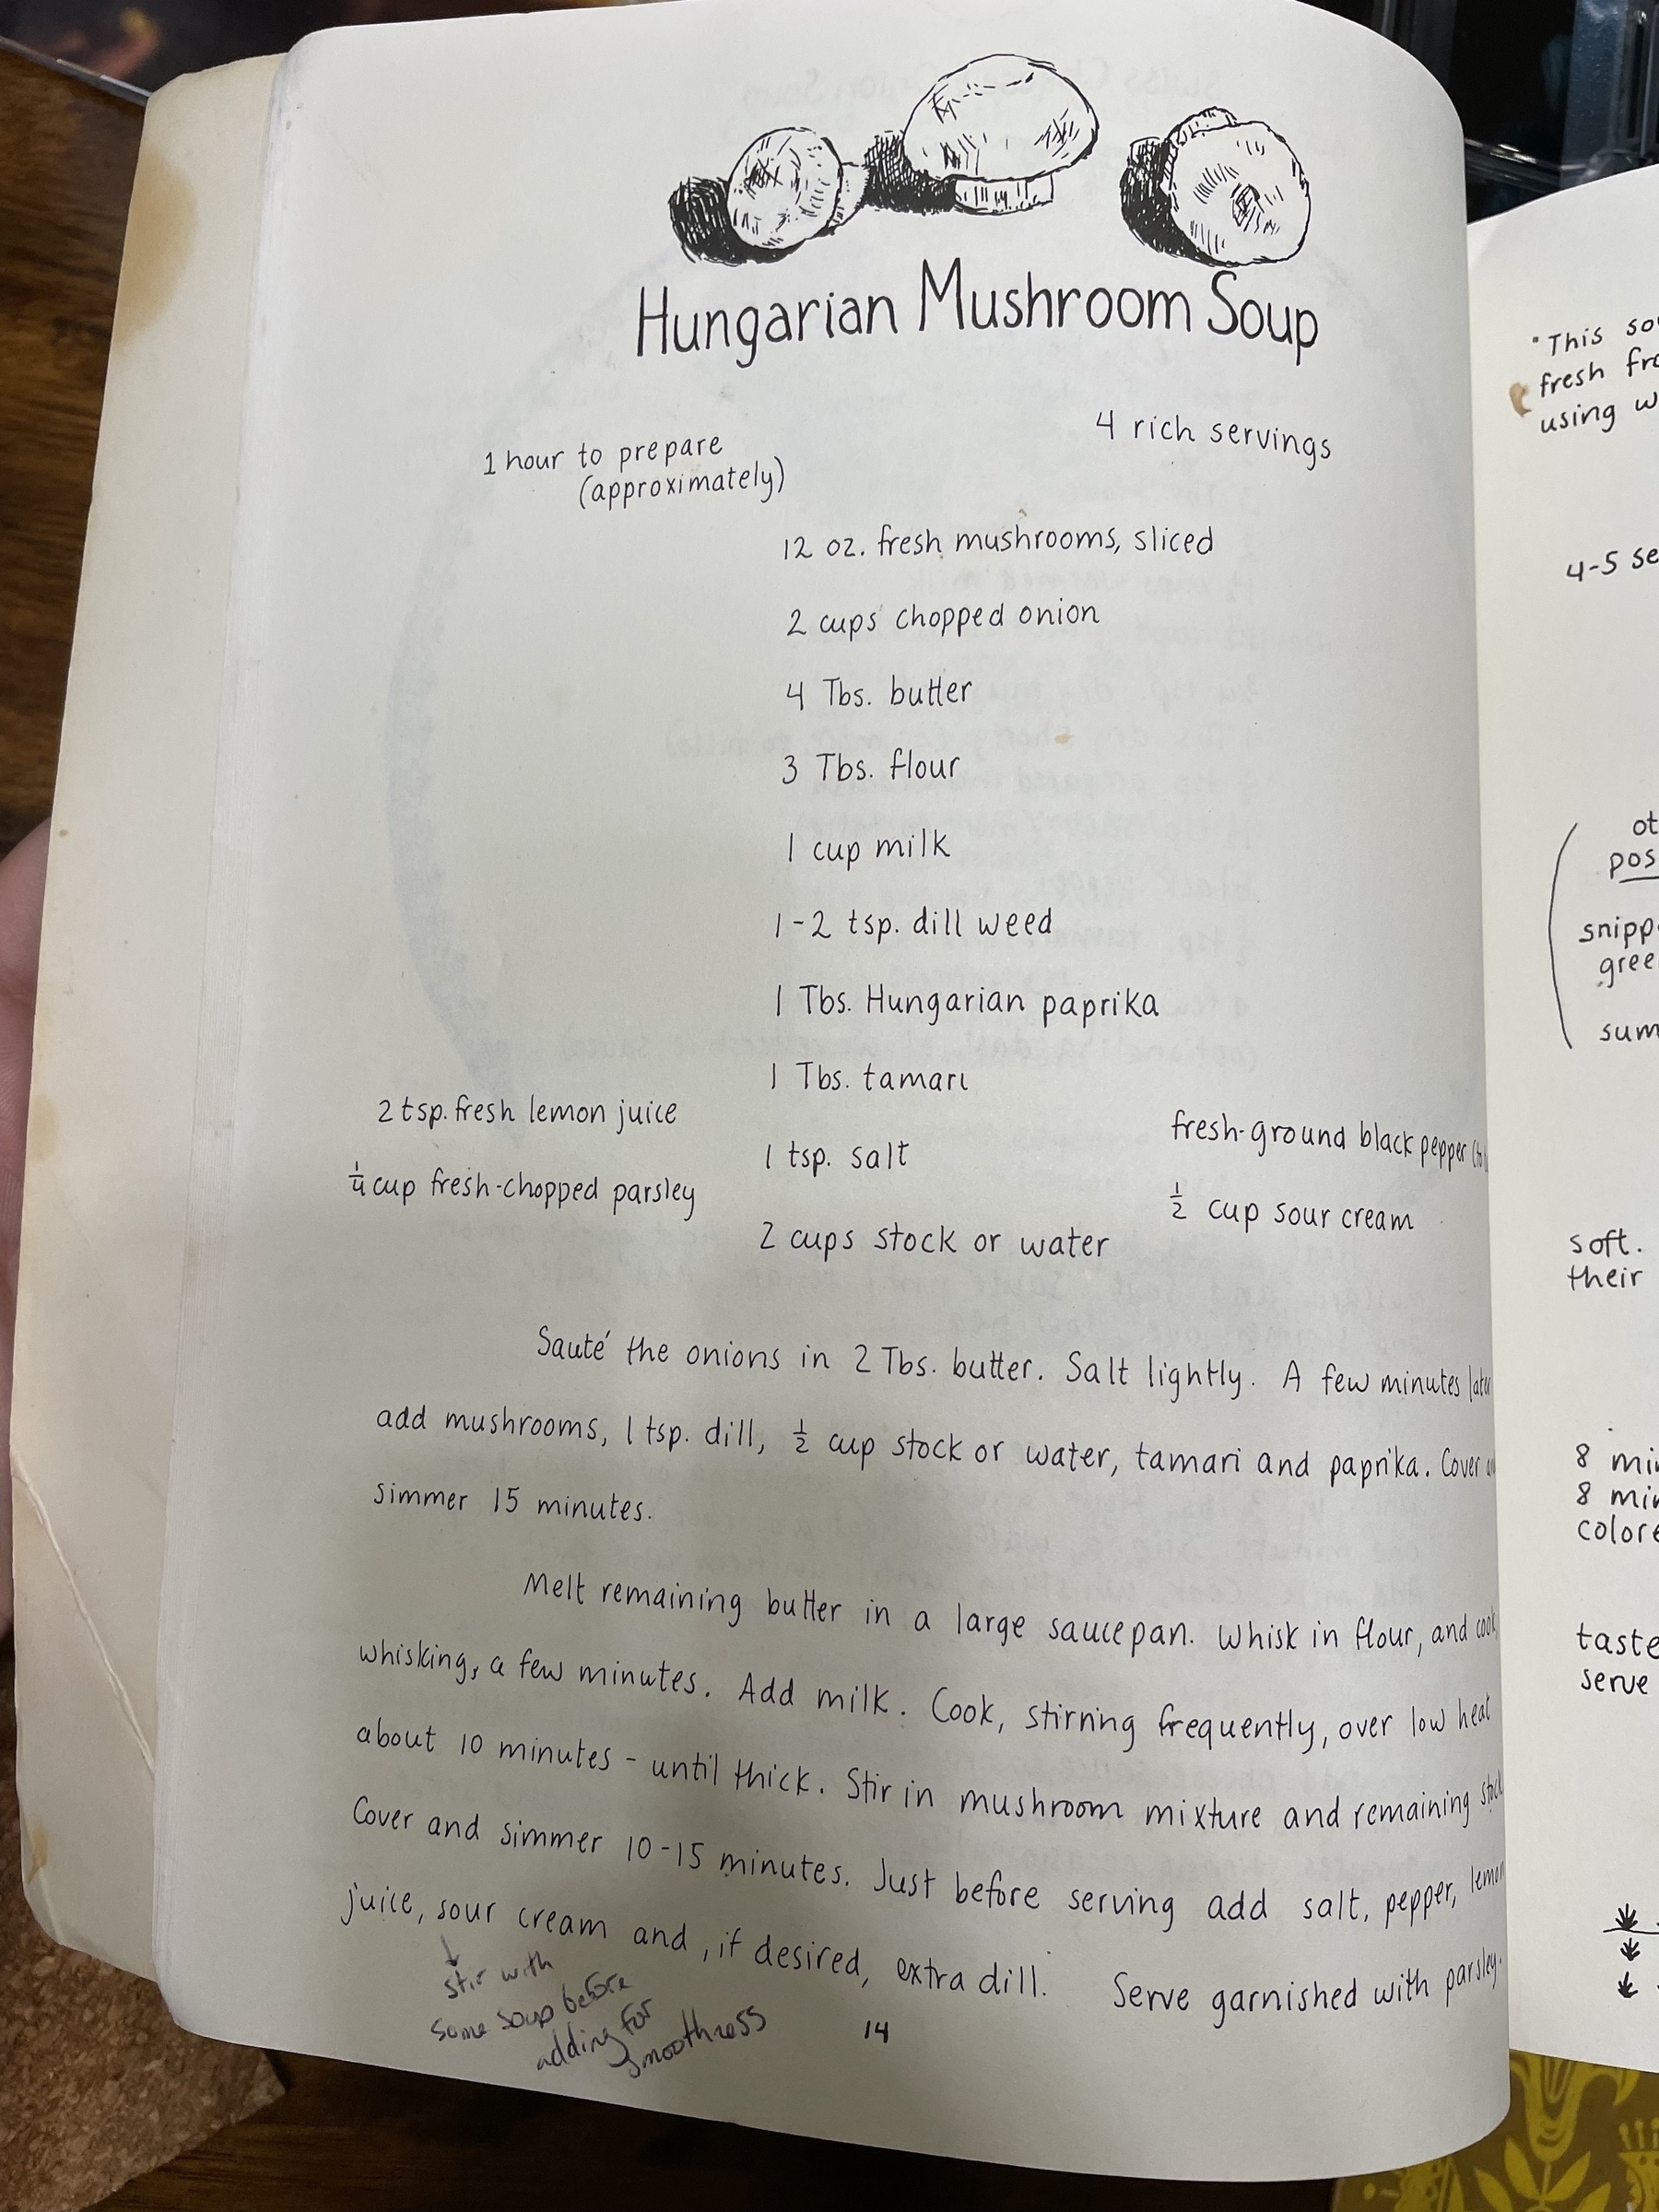 Hungarian Mushroom Soup
1 hour to prepare
(approximately)
4 rich servings
12 oz. fresh mushrooms, sliced
2 cups chopped onion
4 Tbs. butter
3 Tbs. flour
1 cup milk
1-2 tsp. dill weed
1 Tbs. Hungarian paprika
1 Tbs. tamari
2 tsp. fresh lemon juice
1 tsp. salt
fresh-ground black pepper
1/4 cup fresh-chopped parsley
1/2 cup sour cream
2 cups stock or water
Sauté the onions in 2 Tbs. butter. Salt lightly. A few minutes later
add mushrooms, 1 tsp. dill, 1/2 cup stock or water, tamari and paprika. Cover
simmer 15 minutes.
Melt remaining butter in a large saucepan. Whisk in flour, and cook,
whisking, a few minutes. Add milk. Cook, stirring frequently, over low heat
about 10 minutes - until thick. Stir in mushroom mixture and remaining stock.
Cover and simmer 10-15 minutes. Just before serving add salt, pepper, lemon
juice, sour cream and, if desired, extra dill. Serve garnished with parsley.
↓
stir with
some soup before
adding for
smoothness
14
"This
fresh
using
4-5
snipp
gree
sum
soft.
their
8
8
colore
taste
serve